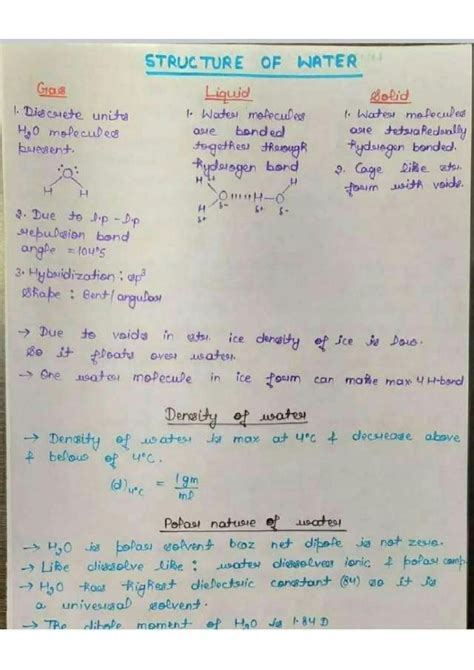 STRUCTURE OF WATER
Gas
1. Discrete units
H2O molecules
present.
O
H H
2. Due to l.p - l.p
repulsion bond
angle = 104°5
3. Hybridization : sp3
Shape : Bent/angular
Liquid
1. Water molecules
are bonded
together through
hydrogen bond
δ+
H H
O ıııı H – O
H δ- δ+ δ-
δ+
Solid
1. Water molecules
are tetrahedrally
hydrogen bonded.
2. Cage like str.
form with voids.
→ Due to voids in str. ice density of ice is low.
So it floats over water.
→ One water molecule in ice form can make max 4 H-bond
Density of water
→ Density of water is max at 4°C & decrease above
& below of 4°C.
(d)4°C = 1gm
ml
Polar nature of water
→ H2O is polar solvent bcoz net dipole is not zero.
→ Like dissolve like : water dissolves ionic & polar comp
→ H2O has highest dielectric constant (84) so it is
a universal solvent.
→ The dipole moment of H2O is 1.84 D